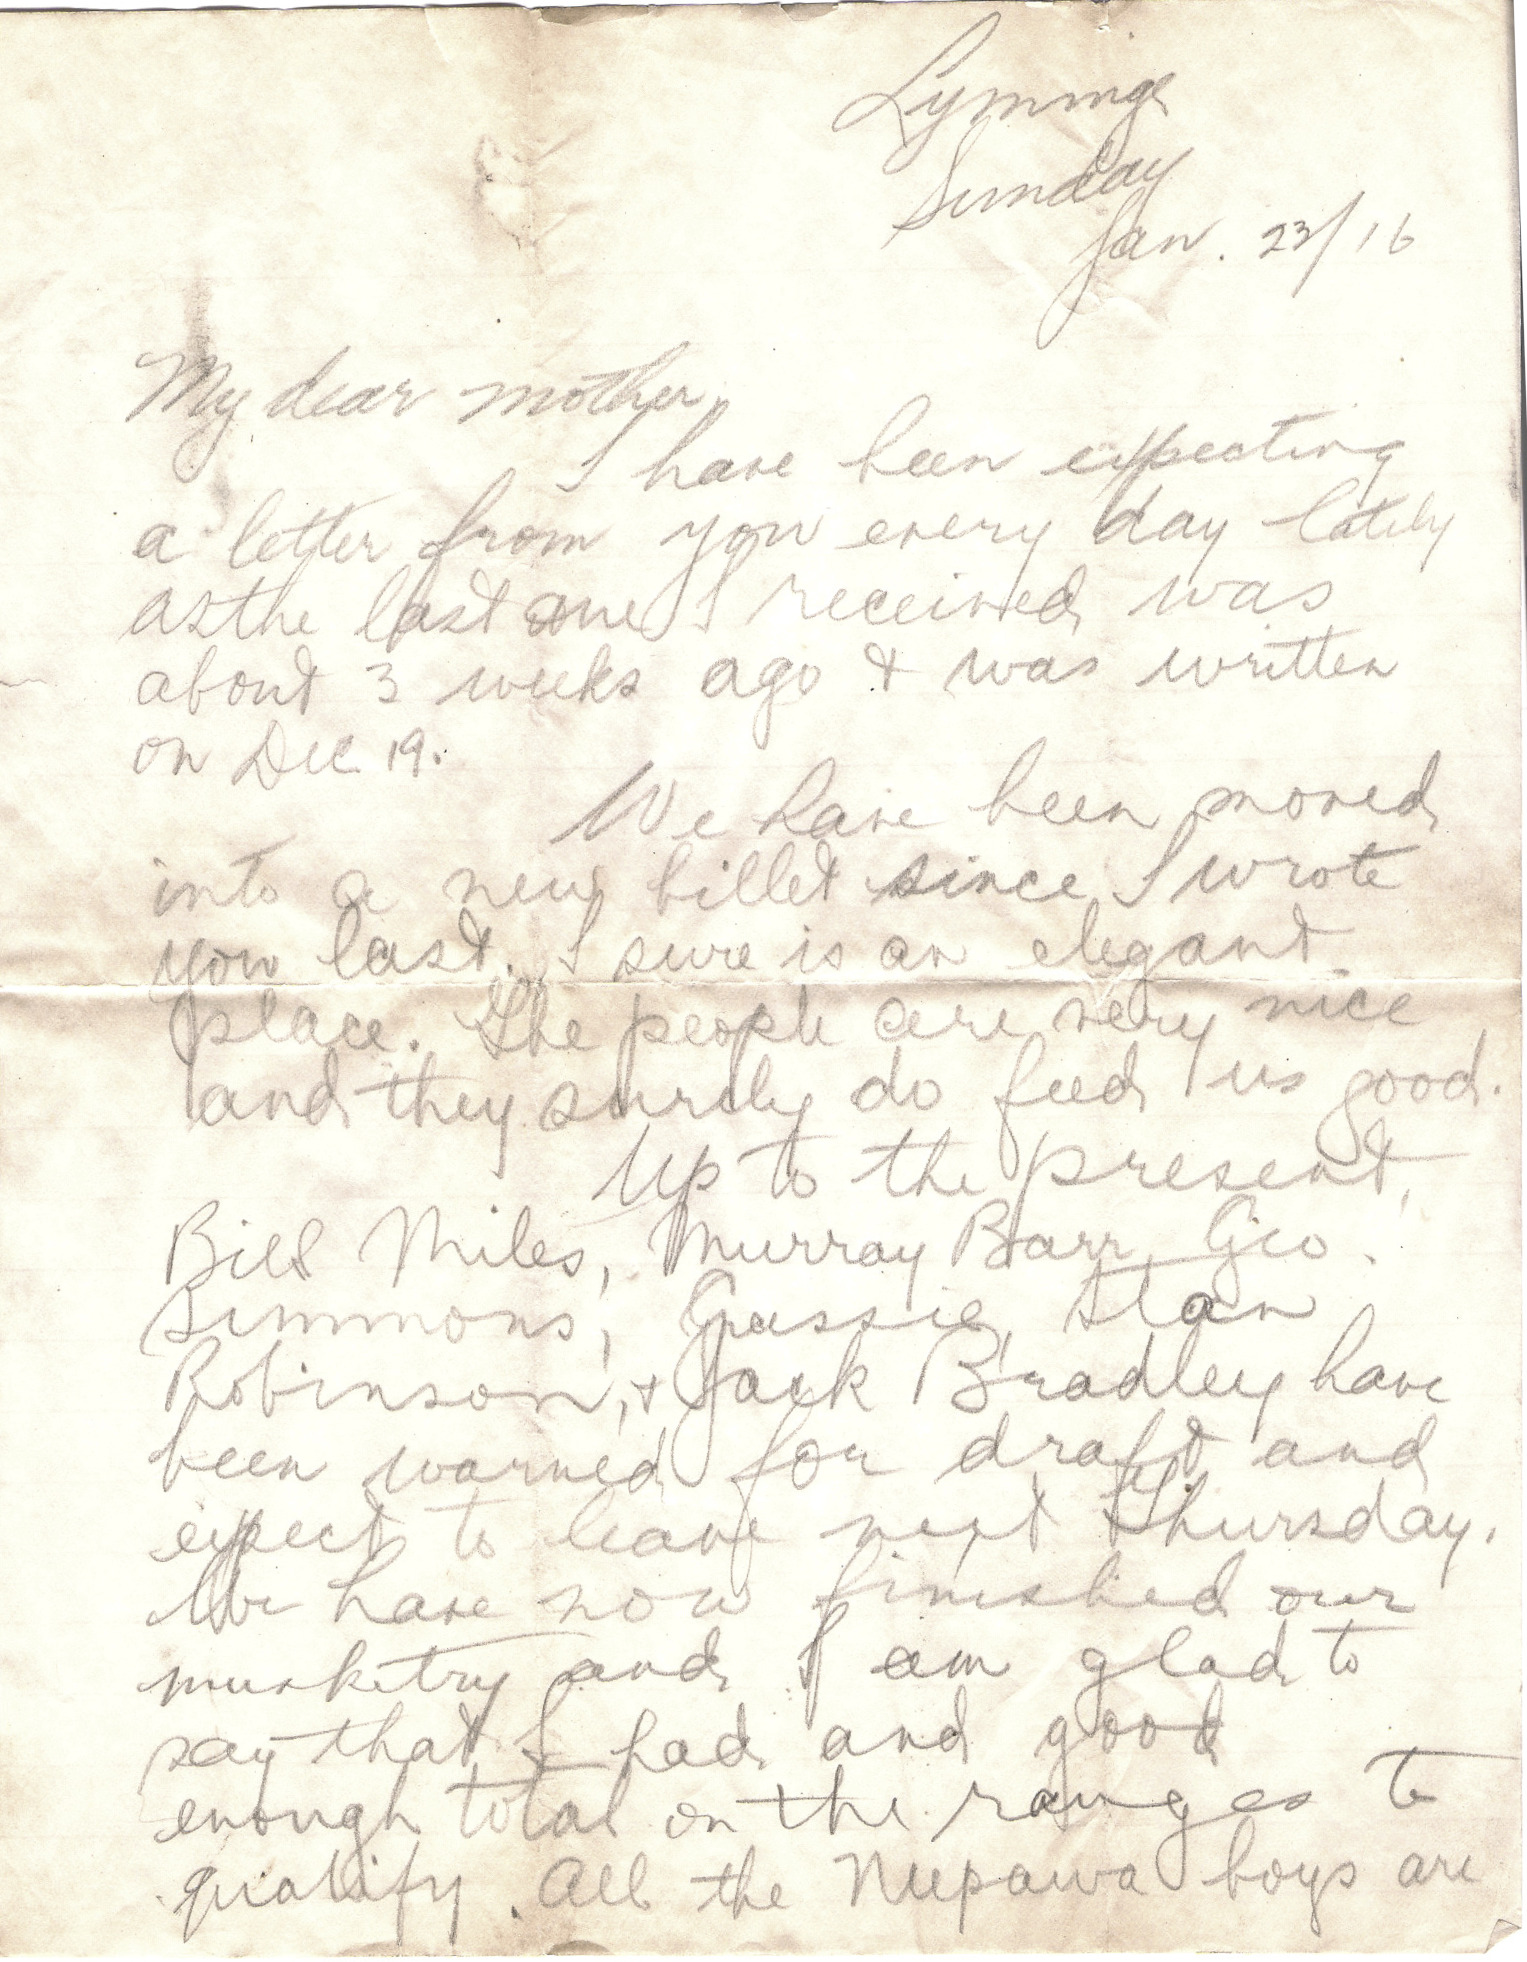 Lyminge
Sunday
Jan. 23/16
My dear mother,
I have been expecting
a letter from you every day lately
as the last one I received was
about 3 weeks ago & was written
on Dec. 19.
We have been moved
into a new billet since I wrote
you last. I sure is an elegant
place. The people are very nice
and they surely do feed us good.
Up to the present,
Bill Miles, Murray Barr, Geo.
Simmons, Grassie, Stan
Robinson, & Jack Bradley have
been warned for draft and
expect to leave next Thursday.
We have now finished our
musketry and I am glad to
say that I had and good
enough total on the ranges to
qualify. All the Neepawa boys are